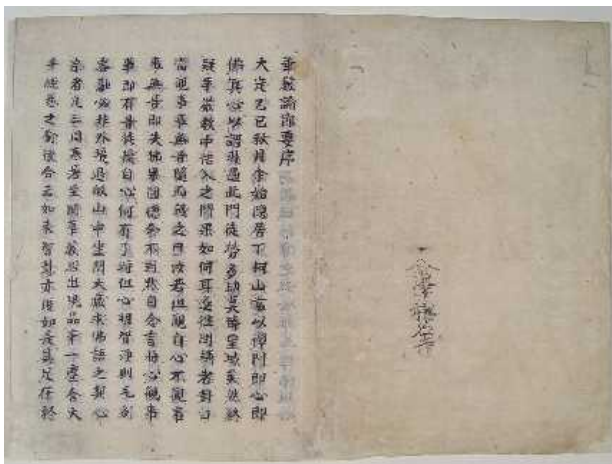 金澤稱名寺
華嚴論節要序
大定乙巳秋月余始隱居下柯山常以禪門即心即
佛冥心以謂非遇此門徒勞多劫莫臻聖域矣然終
疑華嚴教中悟入之門果如何耳遂往問講者對曰
當觀事事無㝵隨而誡之曰汝若但觀自心不觀事
事無㝵即失佛果圓德余不對默自念言將心觀事
事即有㝵徒擾自心何有了時但心明智淨則毛刹
容融必非外境退歸山中坐閱大藏求佛語之契心
宗者凡三周寒暑至閱華嚴經出現品舉一塵含大
千經卷之喻後合云如來智慧亦復如是具足在於